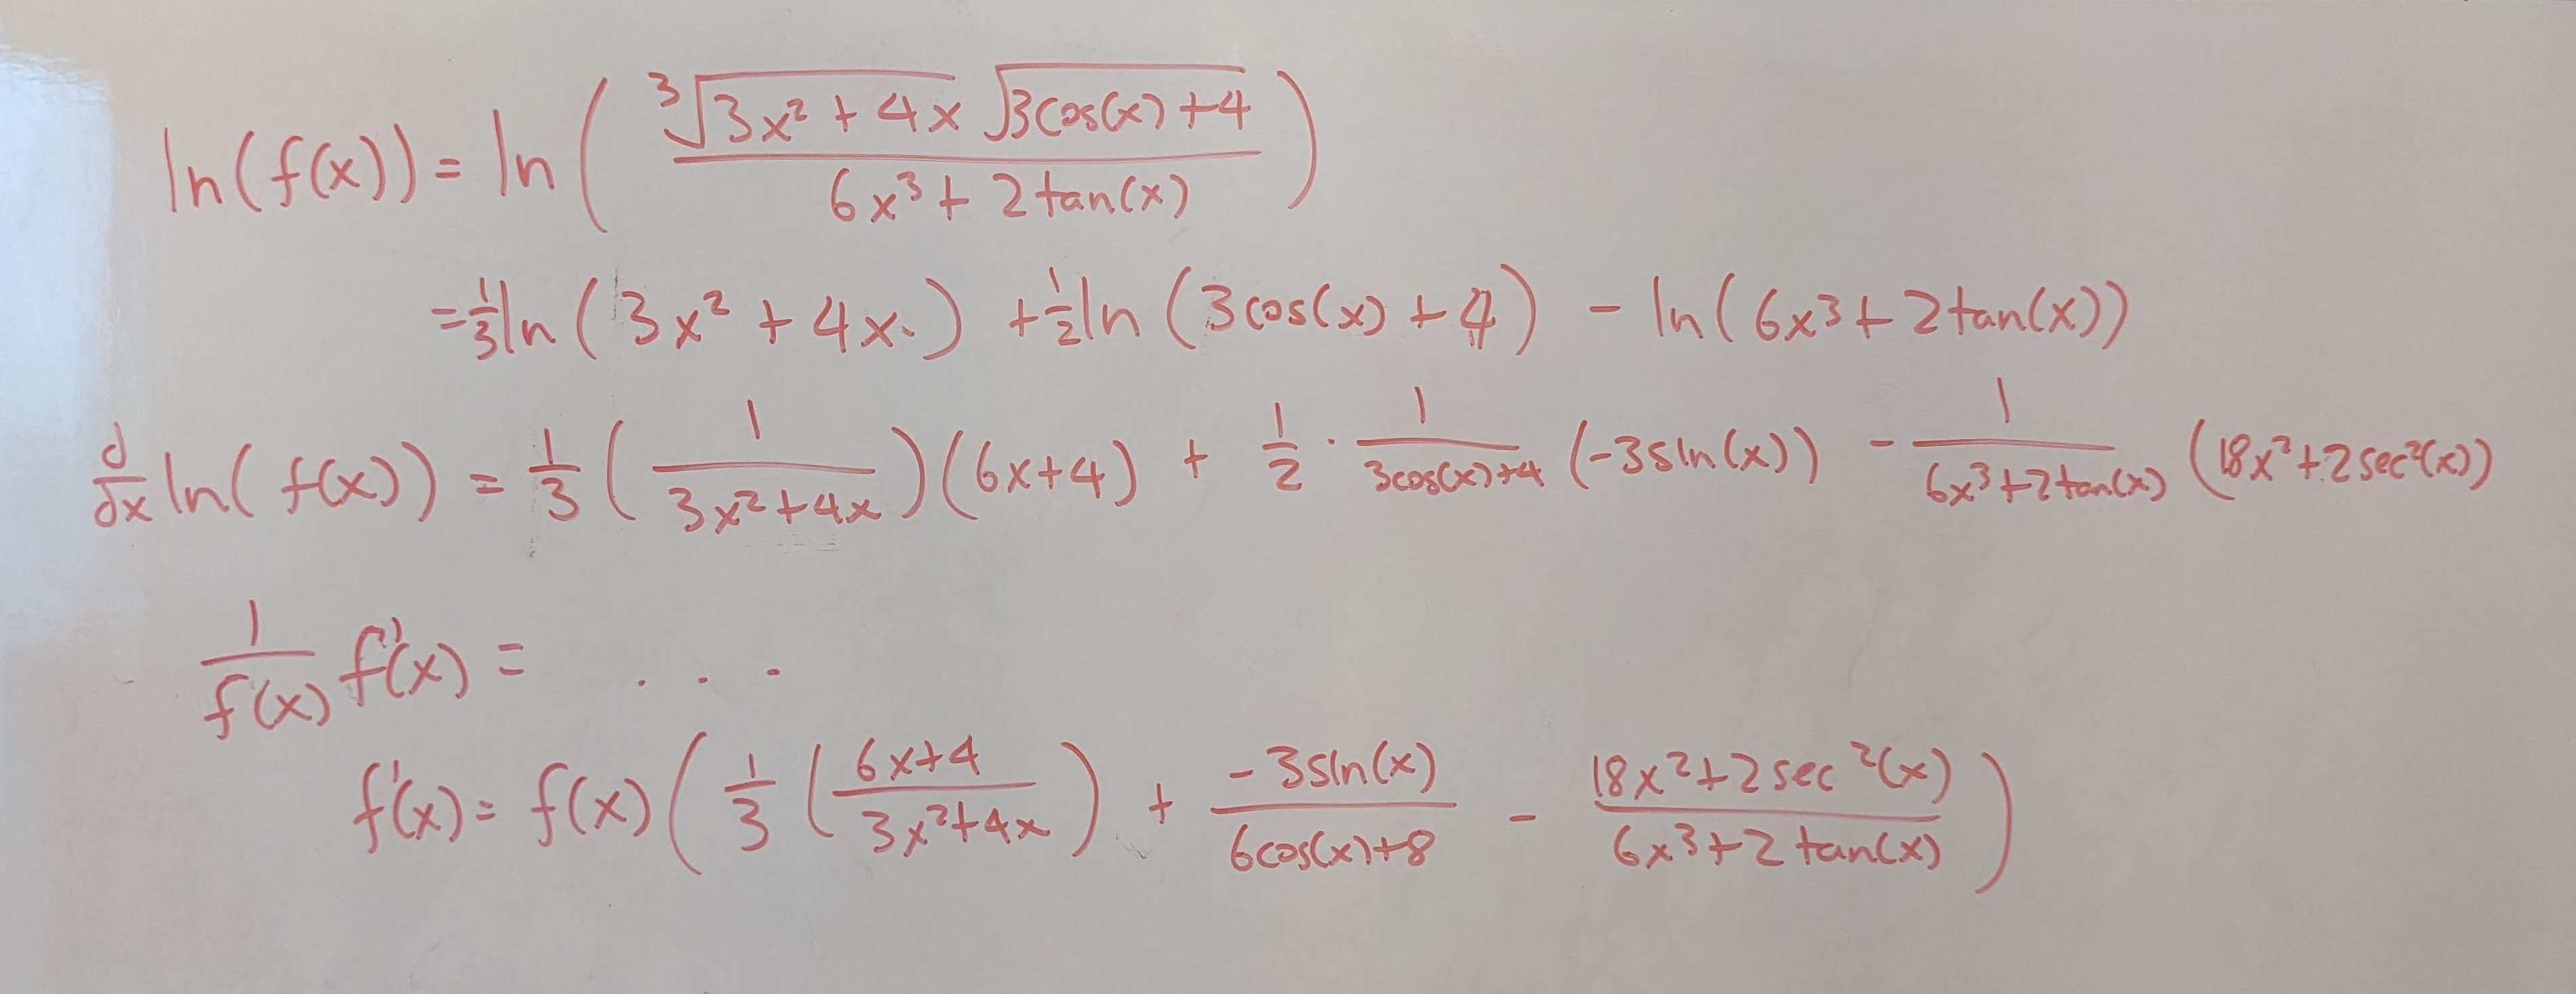 ln(f(x)) = ln( ∛(3x² + 4x) √(3cos(x) + 4) / (6x³ + 2tan(x)) )
= 1/3 ln(3x² + 4x) + 1/2 ln(3cos(x) + 4) - ln(6x³ + 2tan(x))
d/dx ln(f(x)) = 1/3 (1/(3x²+4x))(6x+4) + 1/2 · 1/(3cos(x)+4) (-3sin(x)) - 1/(6x³+2tan(x)) (18x²+2sec²(x))
1/f(x) f'(x) = . . .
f'(x) = f(x) ( 1/3 ((6x+4)/(3x²+4x)) + (-3sin(x))/(6cos(x)+8) - (18x²+2sec²(x))/(6x³+2tan(x)) )